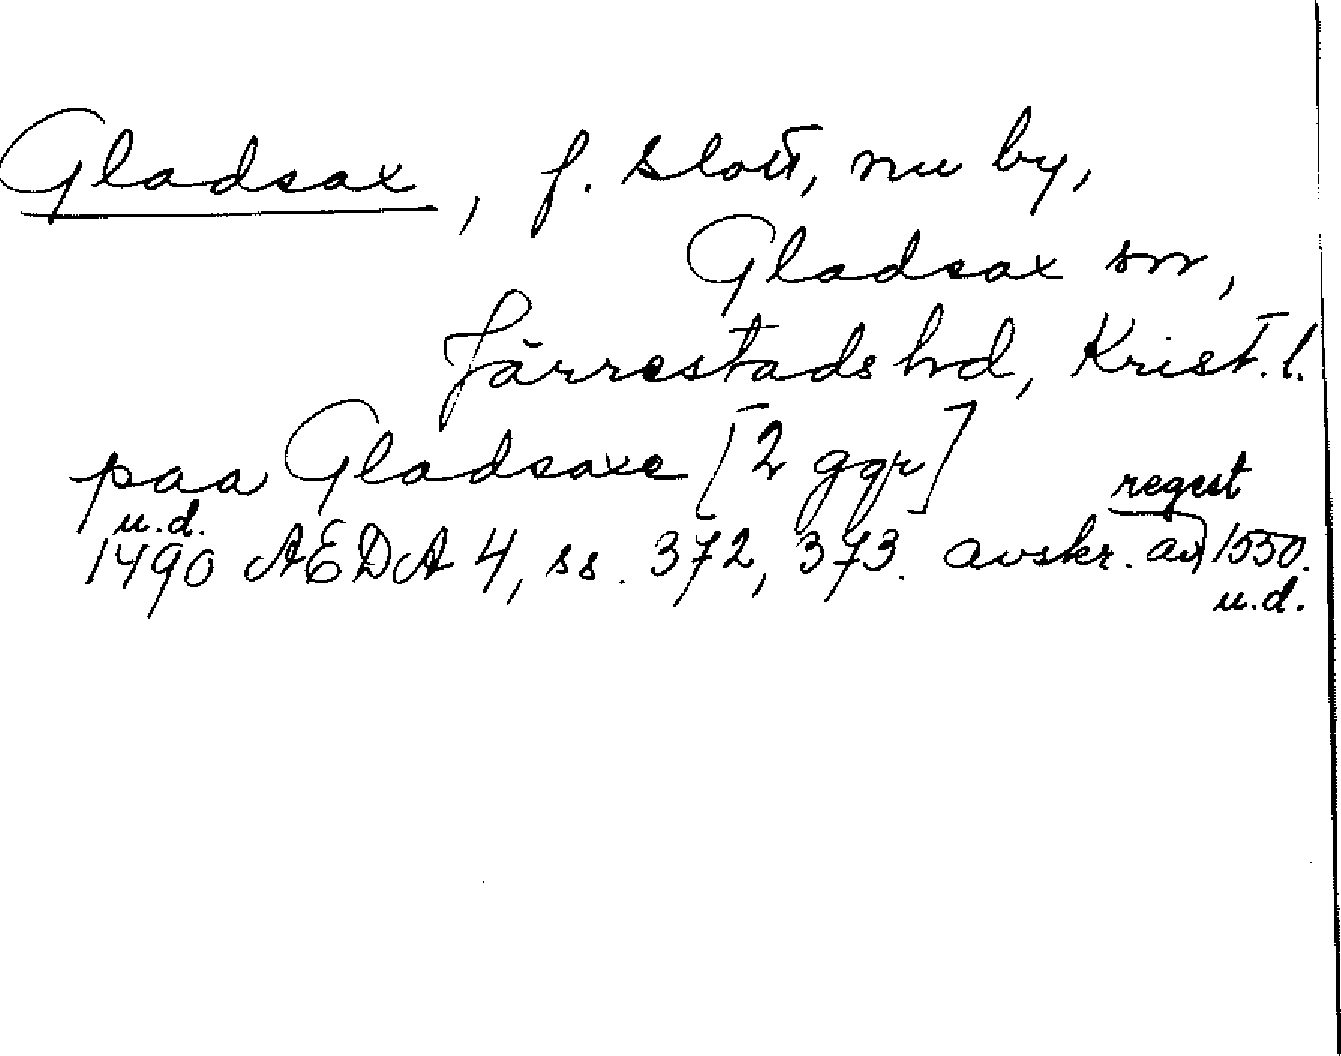 Gladsax, f. slott, nu by,
Gladsax sn,
Järrestads hd, Krist. l.
paa Gladsaxe [2 ggr]
regest
u.d.
1490 AEDA 4, ss. 372, 373. avskr. av 1550.
u.d.